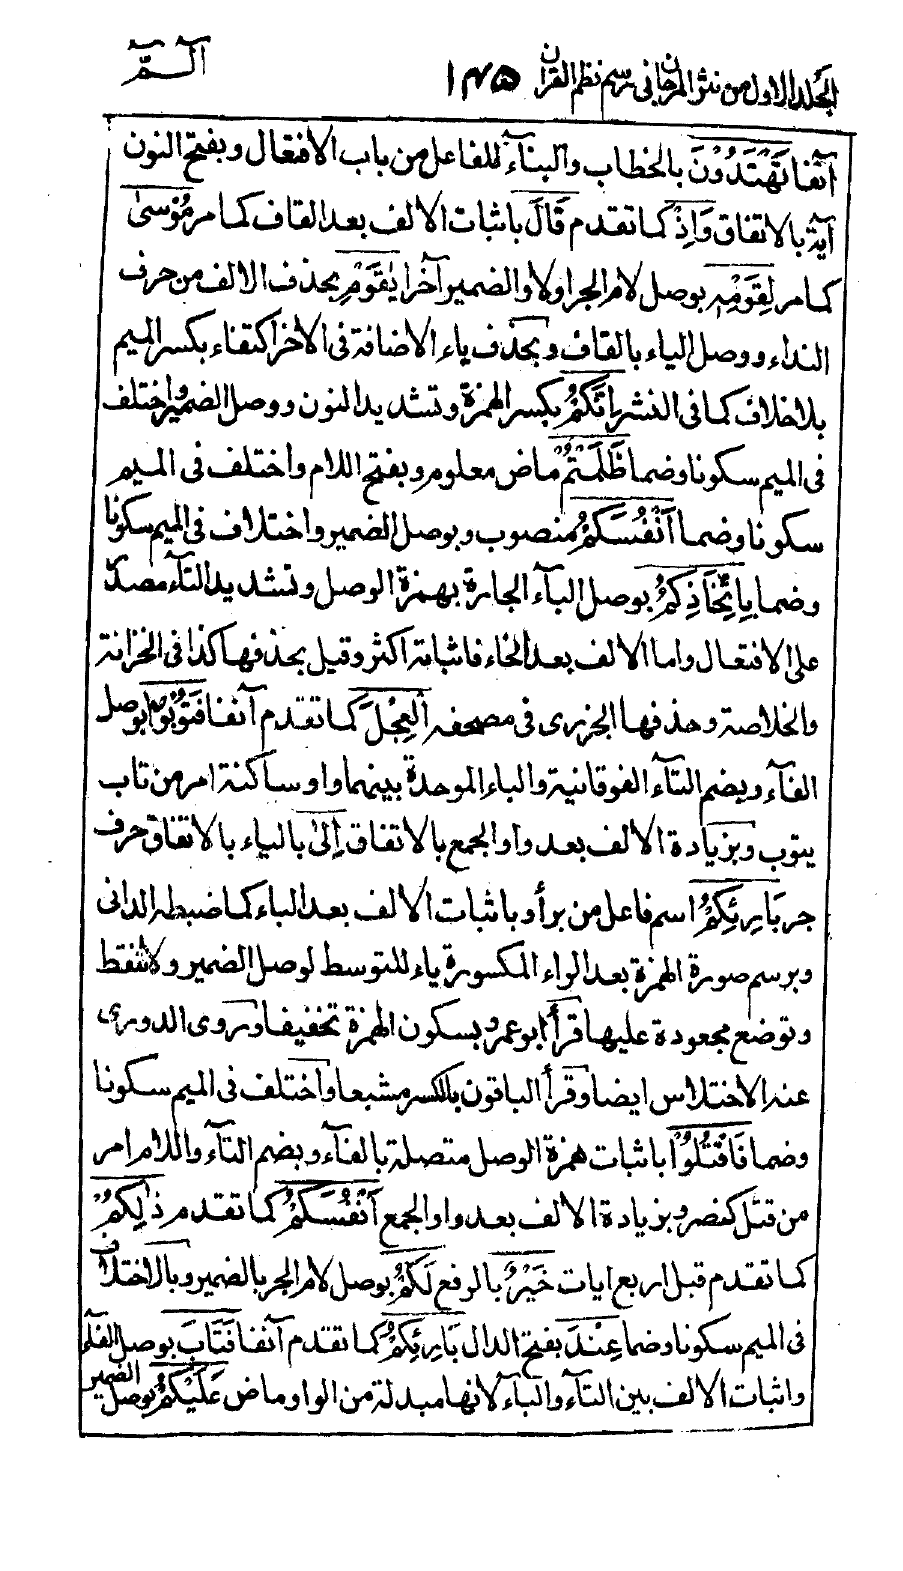 الجلد الاول من نثر المرجان فى رسم نظم القران ١٤٥ الٓمّٓ
آنفا تَهْتَدُوْنَ بالخطاب والبناء للفاعل من باب الافتعال وبفتح النون
آية بالاتفاق وَاِذْ كما تقدم قَالَ باثبات الالف بعد القاف كما مر مُوْسىٰ
كما مر لِقَوْمِهٖ بوصل لام الجر اولا والضمير آخرا يٰقَوْمِ بحذف الالف من حرف
النداء ووصل الياء بالقاف وبحذف ياء الاضافة فى الاخر اكتفاء بكسر الميم
بلا خلاف كما فى النشر اِنَّكُمْ بكسر الهمزة وتشديد النون ووصل الضمير واختلف
فى الميم سكونا وضما ظَلَمْتُمْ ماض معلوم وبفتح اللام واختلف فى الميم
سكونا وضما اَنْفُسَكُمْ منصوب وبوصل الضمير واختلاف فى الميم سكونا
وضما بِاتِّخَاذِكُمُ بوصل البآء الجارة بهمزة الوصل وتشديد التآء مصدر
على الافتعال واما الالف بعد الخاء فاثباته اكثر وقيل بحذفها كذا فى الخزانة
والخلاصة وحذفها الجزرى فى مصحفه الْعِجْلَ كما تقدم آنفا فَتُوْبُوْا بوصل
الفآء وبضم التآء الفوقانية والباء الموحدة بينهما واو ساكنة امر من تاب
يتوب وبزيادة الالف بعد واو الجمع بالاتفاق اِلىٰ بالياء بالاتفاق حرف
جر بَارِئِكُمْ اسم فاعل من برأ وباثبات الالف بعد الباء كما ضبطه الدانى
وبرسم صورة الهمزة بعد الراء المكسورة ياء للتوسط لوصل الضمير ولا تنقط
وتوضع مجعودة عليها قرأ ابو عمرو بسكون الهمزة تخفيفا وروى الدورى
عنه الاختلاس ايضا وقرأ الباقون بالكسر مشبعا واختلف فى الميم سكونا
وضما فَاقْتُلُوْا باثبات همزة الوصل متصلة بالفآء وبضم التآء واللام امر
من قتل كنصر وبزيادة الالف بعد واو الجمع اَنْفُسَكُمْ كما تقدم ذٰلِكُمْ
كما تقدم قبل اربع ايات خَيْرٌ بالرفع لَكُمْ بوصل لام الجر بالضمير وبالاختلاف
فى الميم سكونا وضما عِنْدَ بفتح الدال بَارِئِكُمْ كما تقدم آنفا فَتَابَ بوصل الفآء
واثبات الالف بين التآء والبآء لانها مبدلة من الواو ماض عَلَيْكُمْ بوصل الضمير